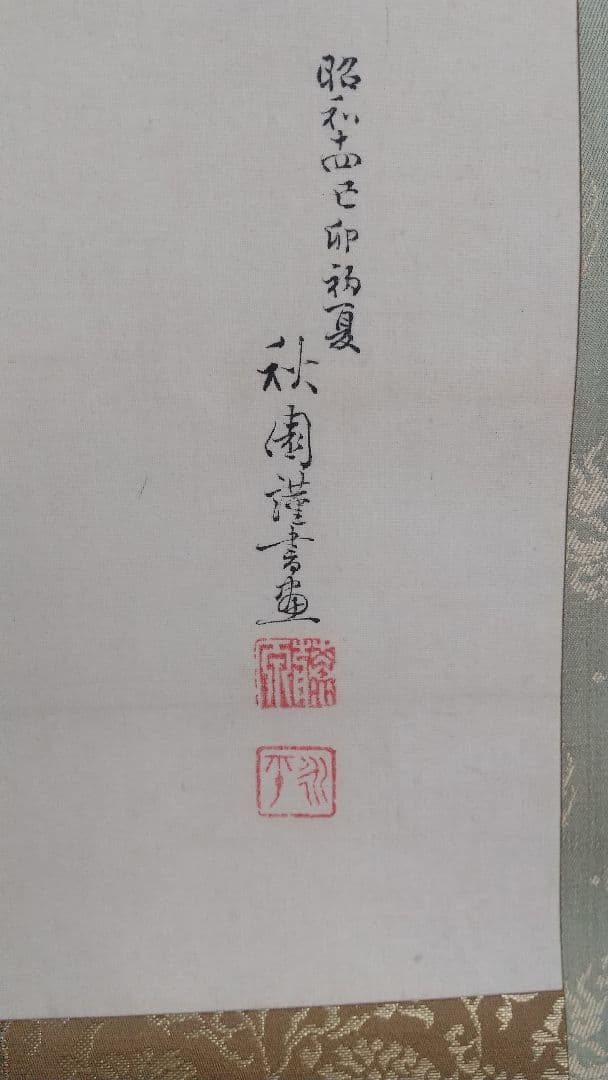 昭和十四己卯初夏
秋園謹書画